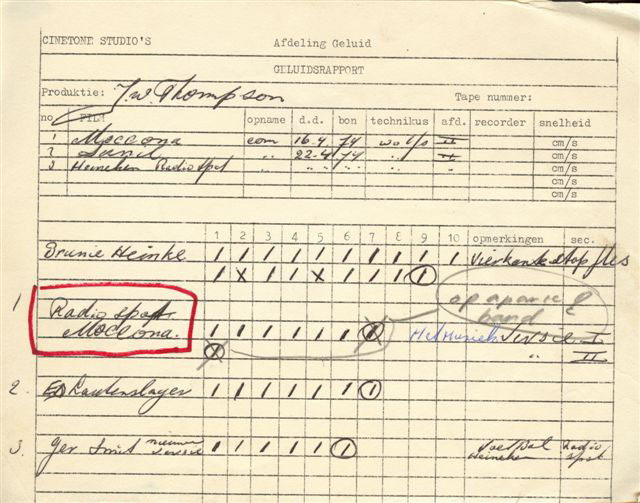 CINETONE STUDIO'S Afdeling Geluid
GELUIDSRAPPORT
Produktie: J.W. Thompson Tape nummer:
no. FILM opname d.d. bon technikus afd. recorder snelheid
1 Moccona com 16-4 74 II cm/s
2 22-4 74 " II cm/s
3 Heineken Radio Spot " " " cm/s
cm/s
cm/s
1 2 3 4 5 6 7 8 9 10 opmerkingen sec.
Brunie Heinke Vierkante stop fles
1 Radio spot op aparte band
Moccona. Met Muziek Versie I
" II
2. Lautenslager
3. Ger Smit nieuwe versie Voetbal Radio
Heineken spot